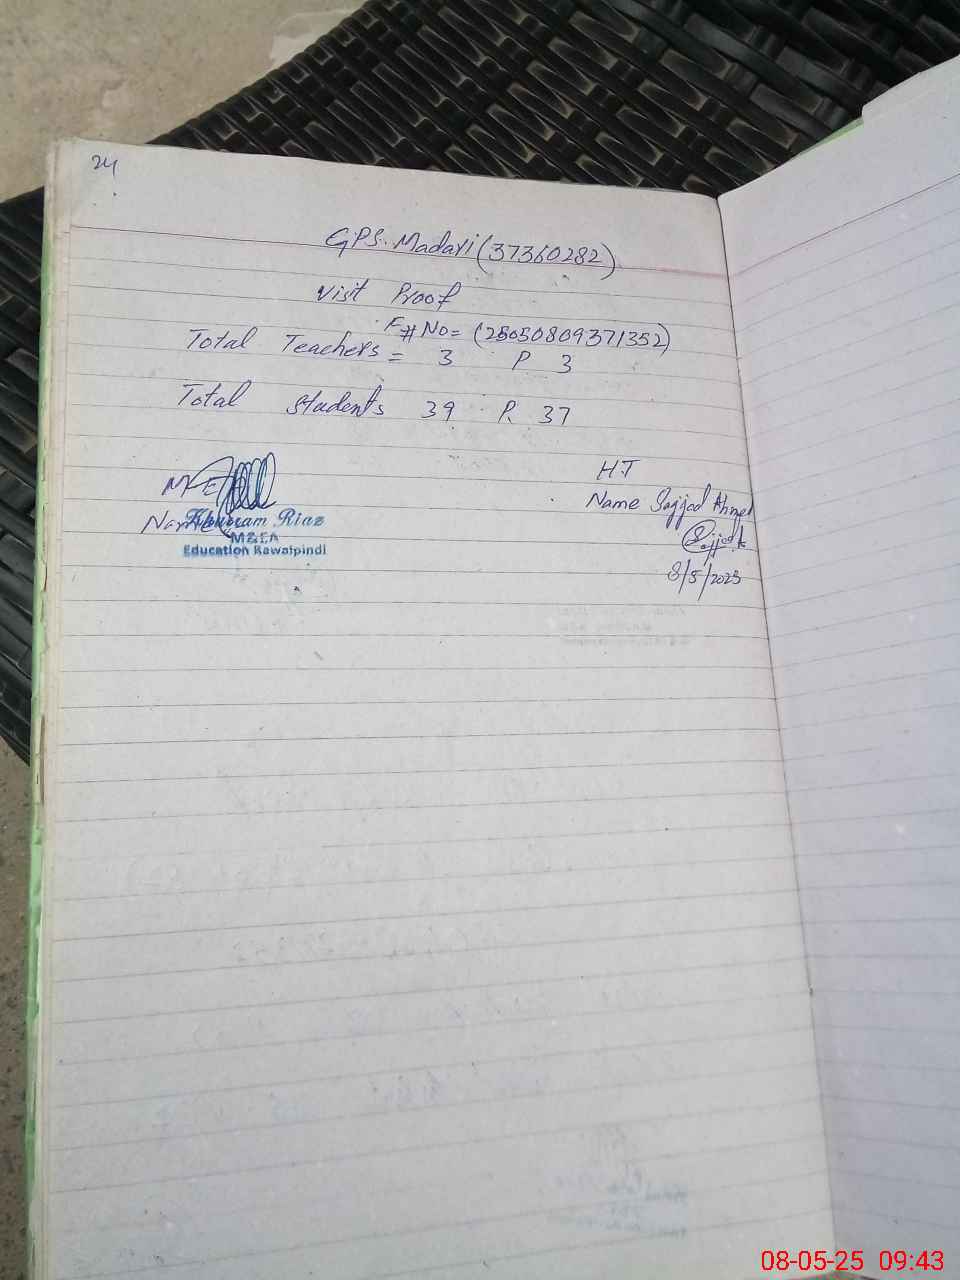 24
GPS. Madari (37360282)
Visit Proof
F# No = (25050809371352)
Total Teachers = 3 P 3
Total Students 39 P. 37
H.T
MEA
Name
Khurram Riaz
M&EA
Education Rawalpindi
Name Sajjad Ahmed
Sajjad
8/5/2025
08-05-25 09:43